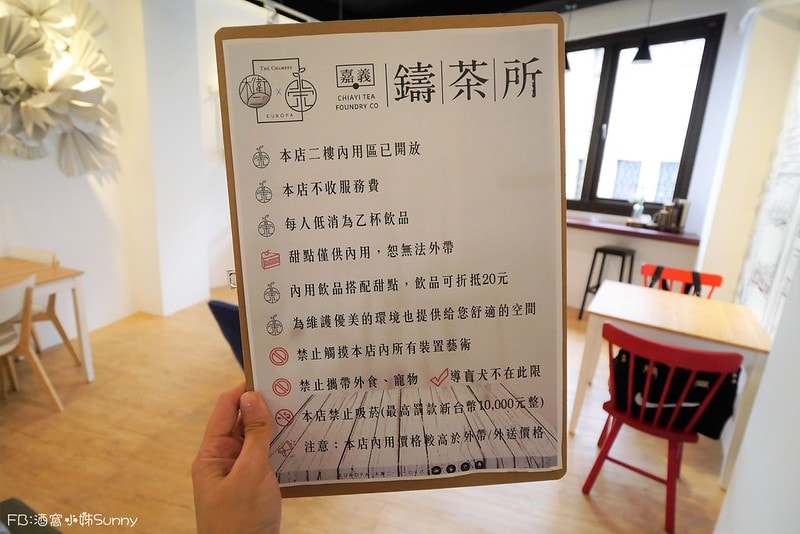 THE CHAMBER
X
EUROPA
嘉義
CHIAYI TEA
FOUNDRY CO
鑄茶所
本店二樓內用區已開放
本店不收服務費
每人低消為乙杯飲品
甜點僅供內用，恕無法外帶
內用飲品搭配甜點，飲品可折抵20元
為維護優美的環境也提供給您舒適的空間
禁止觸摸本店內所有裝置藝術
禁止攜帶外食、寵物 導盲犬不在此限
本店禁止吸菸(最高罰款新台幣10,000元整)
注意：本店內用價格較高於外帶/外送價格
EUROPA
FB:酒窩小姊Sunny